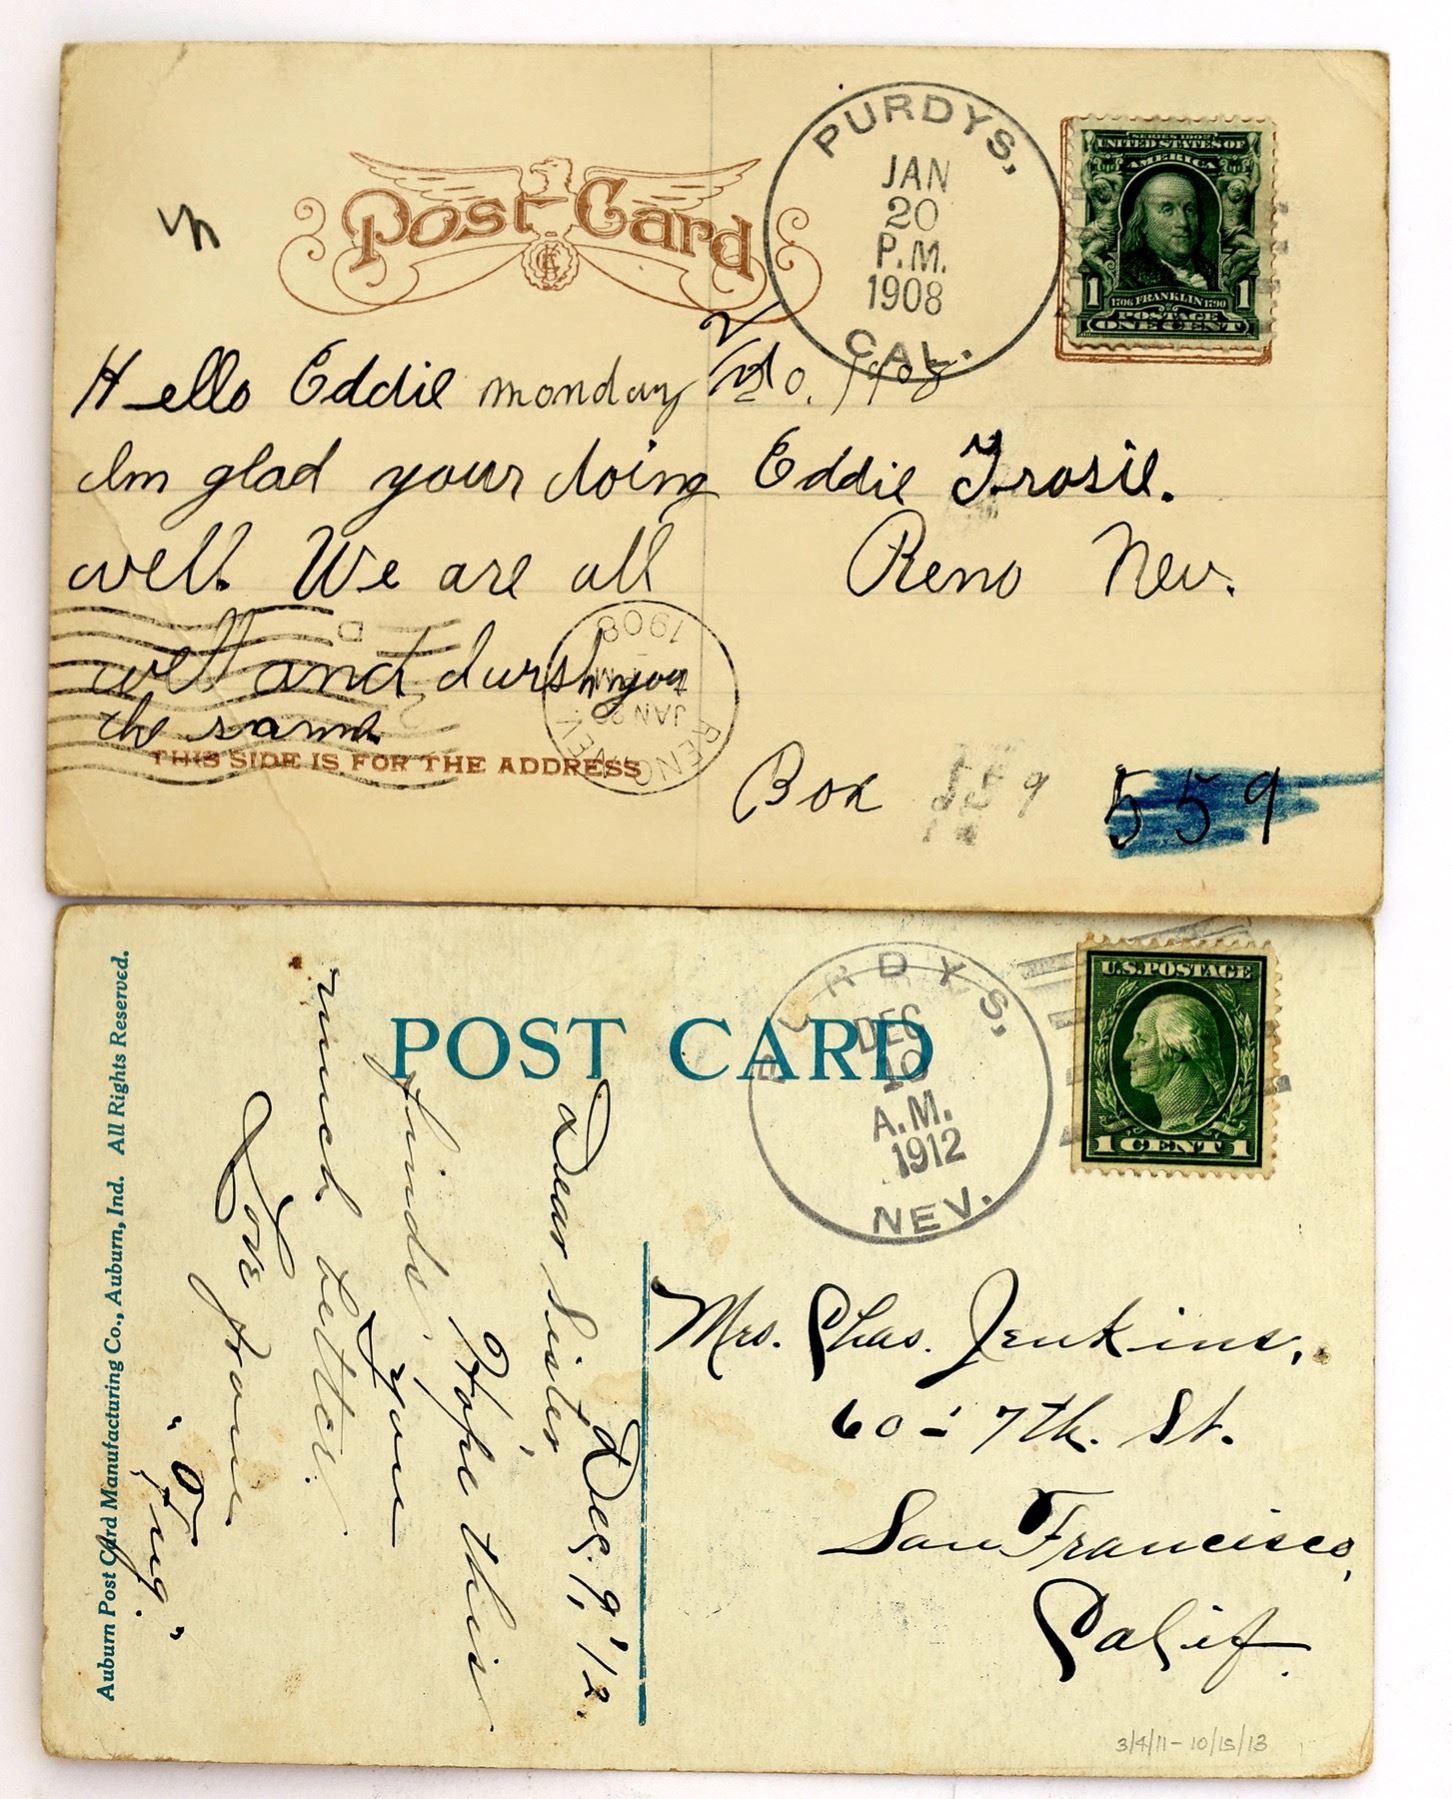 Post Card
PURDYS,
JAN
20
P.M.
1908
CAL.
SERIES 1902
UNITED STATES OF
AMERICA
1706 FRANKLIN 1790
1 1
POSTAGE
ONE CENT
Hello Eddie monday
Im glad your doing
well. We are all
well and
the same
Eddie Trosil.
Reno Nev.
1908
JAN
RENO
NEV.
THIS SIDE IS FOR THE ADDRESS
Box 559 559
POST CARD
PURDYS,
DEC
10
A.M.
1912
NEV.
U.S. POSTAGE
1 CENT 1
Dec. 9, '12.
Dear Sister,
Hope this
finds you
much better.
Love from
Mrs. Chas. Jenkins,
60 - 7th. St.
San Francisco,
Calif.
Auburn Post Card Manufacturing Co., Auburn, Ind. All Rights Reserved.
3/4/11 - 10/15/13